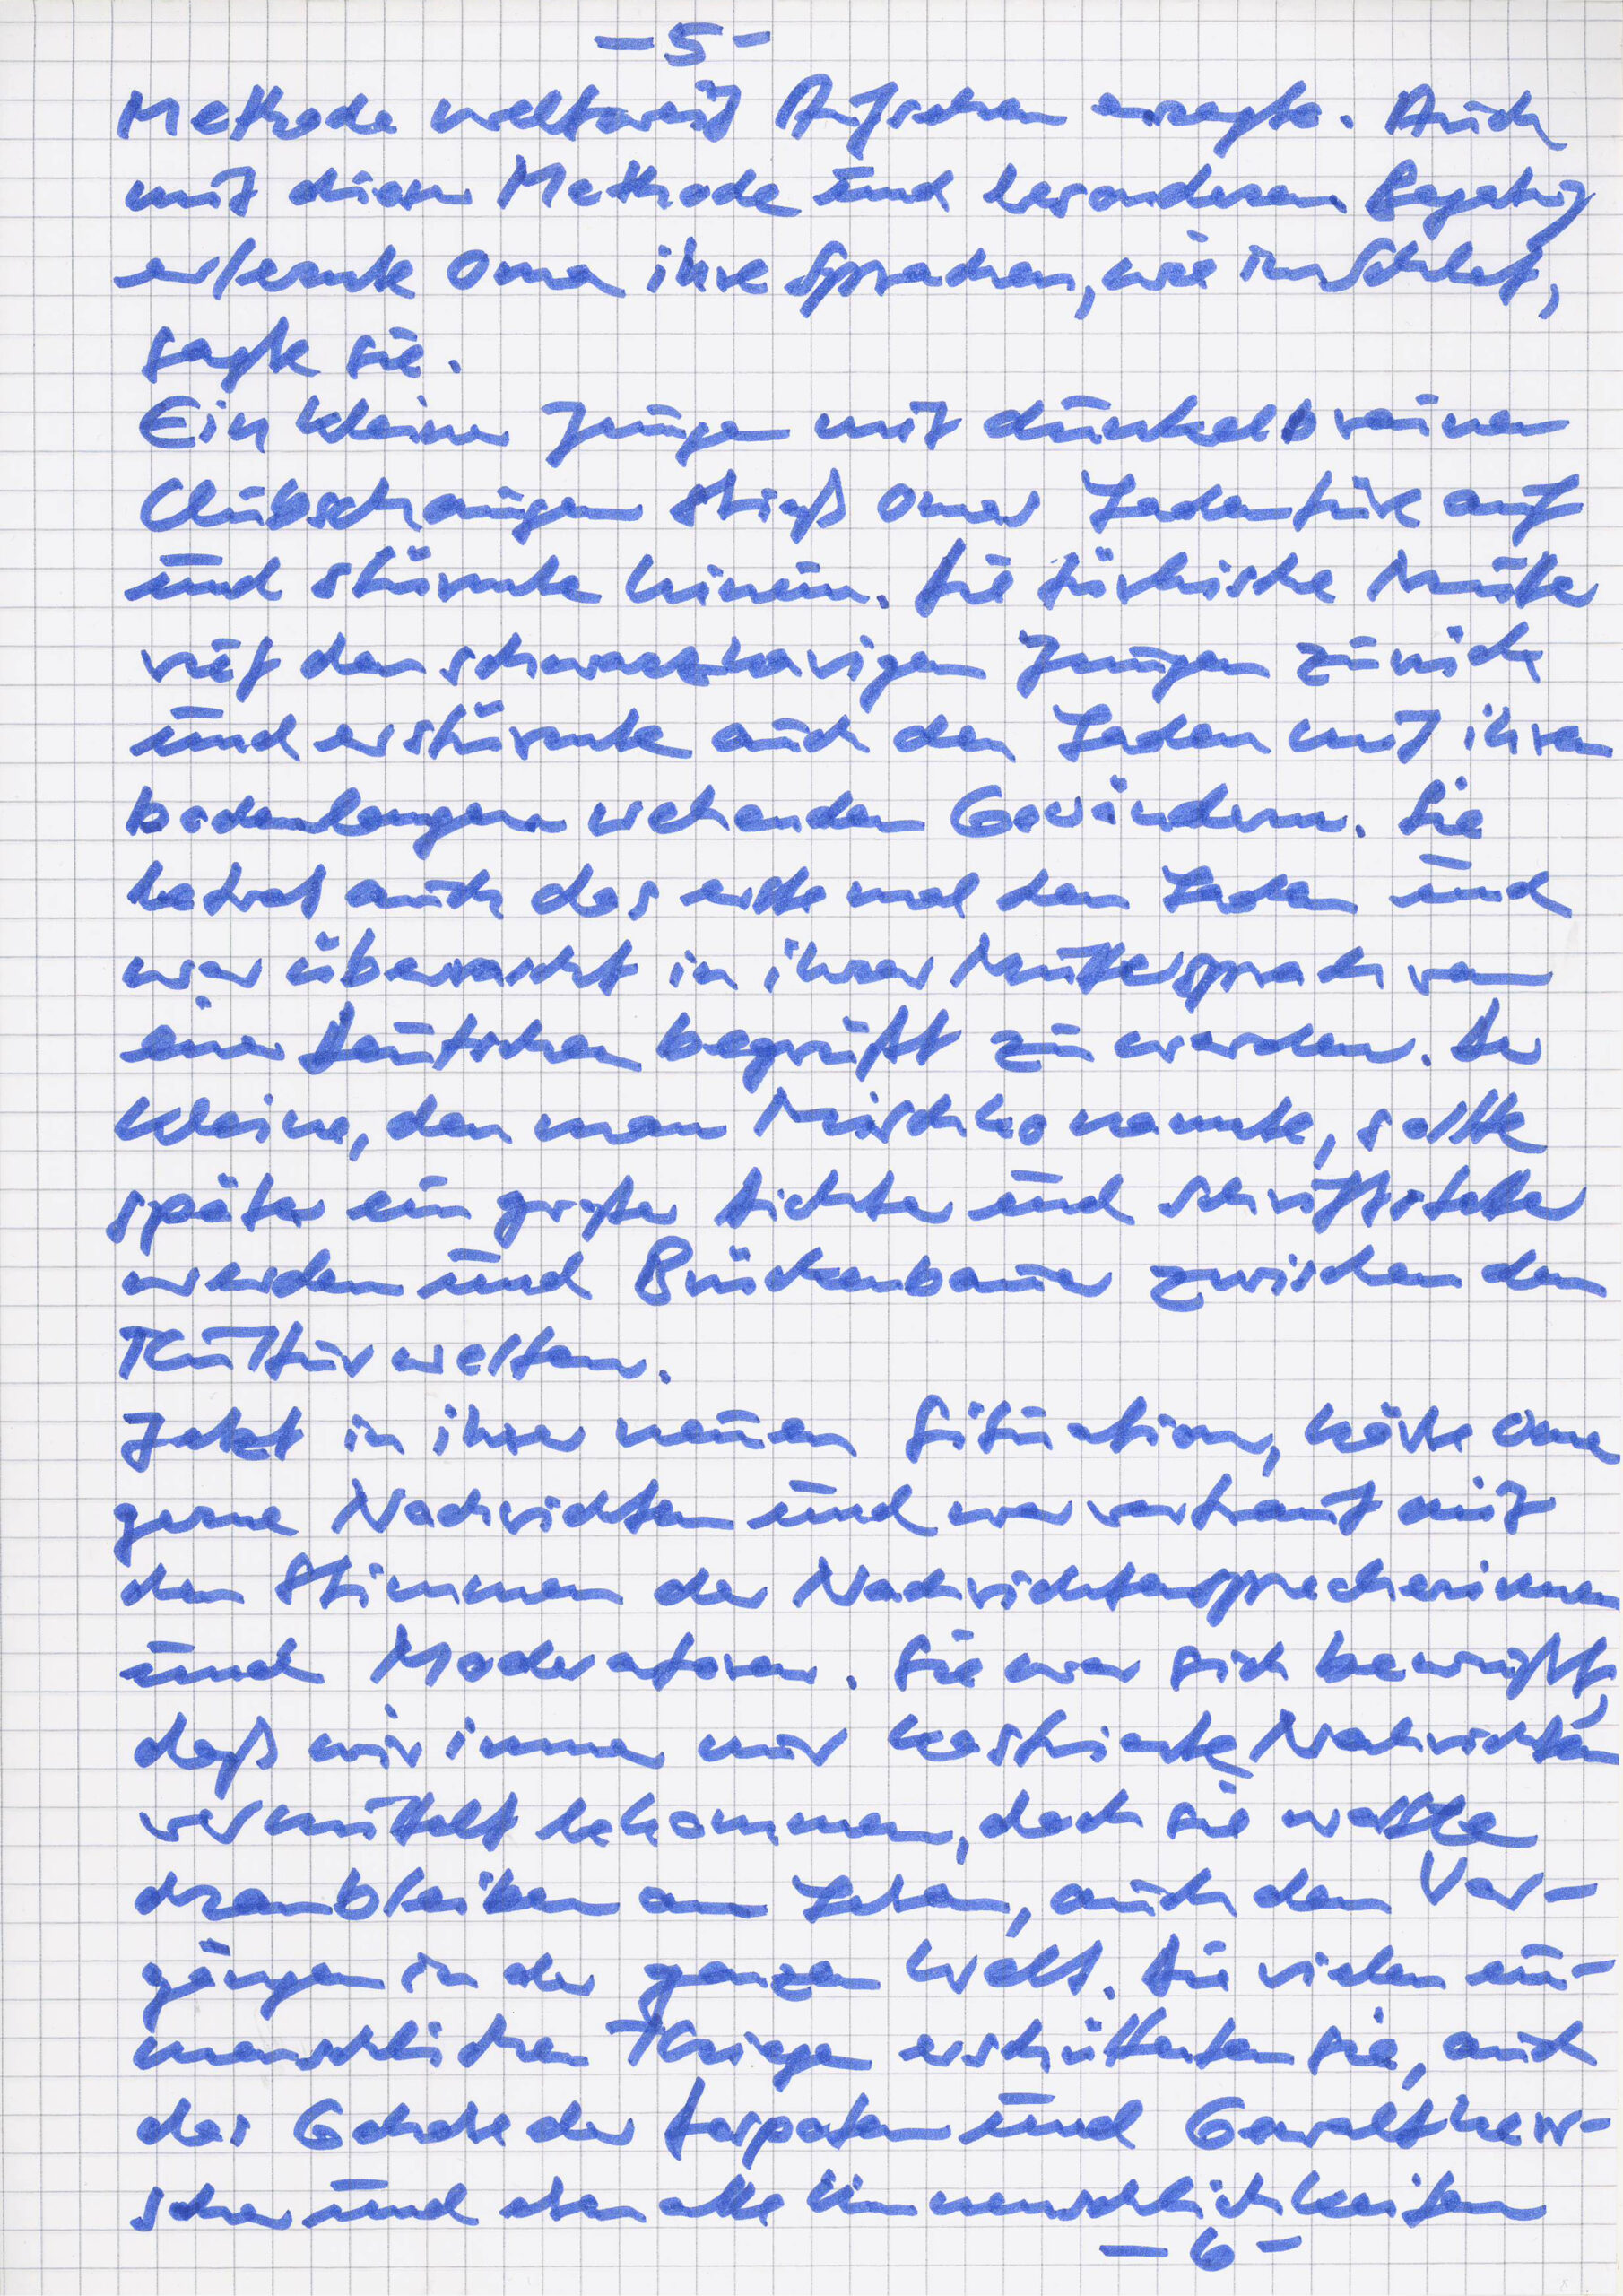 -5-
Methode weltweit Aufsehen erregte. Auch
mit dieser Methode und besonderen Begabung
erlernte Oma ihre Sprachen, wie im Schlaf,
sagte sie.
Ein kleiner Junge mit dunkelbraunen
stieß Omas Ladentüre auf
und stürmte hinein. Die türkische Mutter
rief den schwarzhaarigen Jungen zurück
und erstürmte auch den Laden mit ihren
bodenlangen wehenden Gewändern. Sie
betrat auch das erste mal den Laden und
war überrascht in ihrer Muttersprach von
einer Deutschen begrüßt zu werden. Der
Kleine, den man Mischko nannte, sollte
später ein großer Dichter und Schriftsteller
werden und Brückenbauer zwischen den
Kulturwelten.
Jetzt in ihrer neuen Situation, hörte Oma
gerne Nachrichten und war vertraut mit
den Stimmen der Nachrichtensprecherinnen
und Moderatoren. Sie war sich bewußt,
daß wir immer nur kastrierte Nachrichten
vermittelt bekommen, doch sie wollte
dranbleiben am Leben, auch den Vor-
gängen in der ganzen Welt. Die vielen un-
menschlichen Kriege erschütterten sie, auch
das Gehabe der Despoten und Gewaltherr-
scher und eben alle Unmenschlichkeiten
-6-